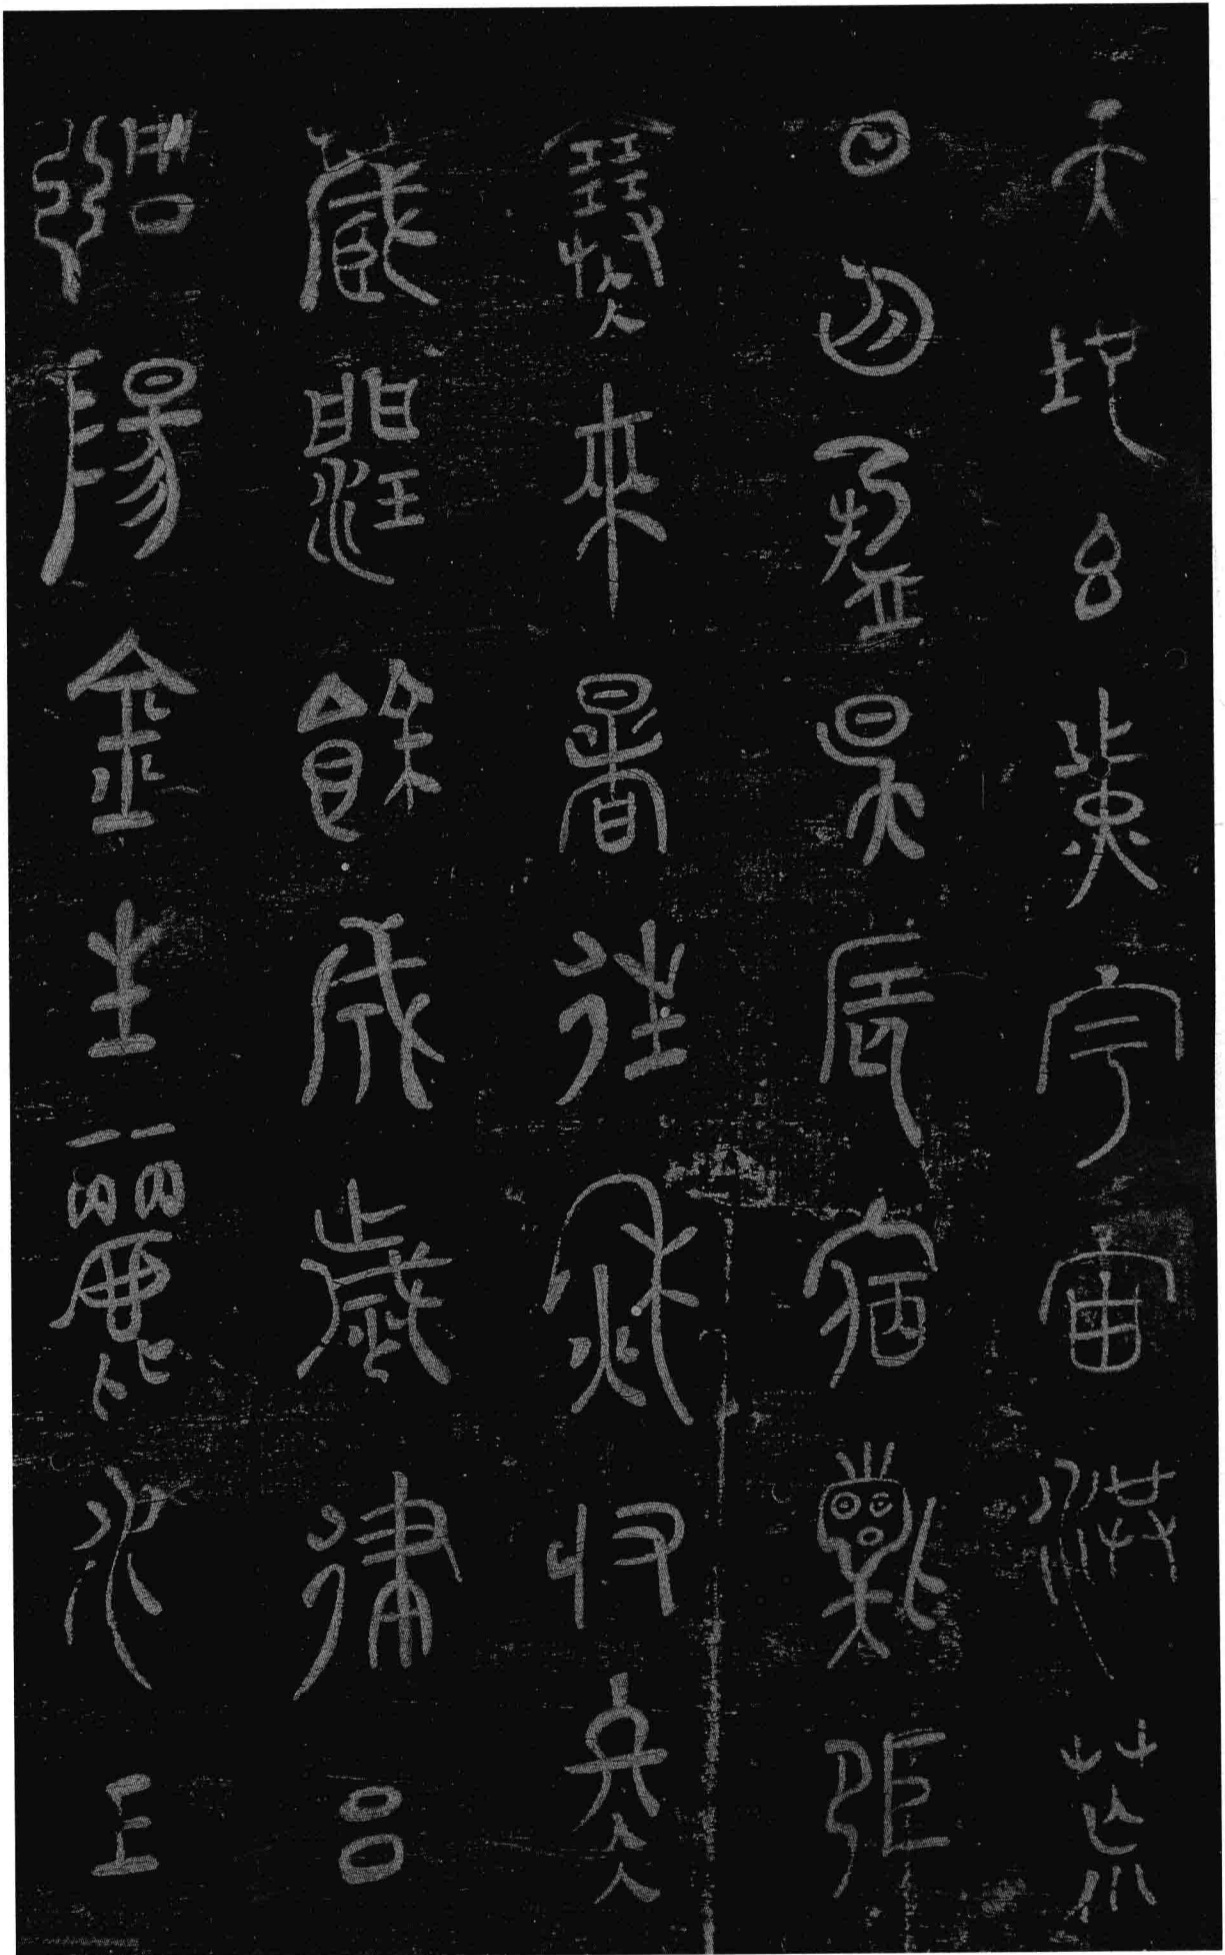 天地玄黃宇宙洪荒
日月盈昃辰宿列張
寒來暑往秋收冬
藏閏餘成歲律呂
調陽金生麗水玉